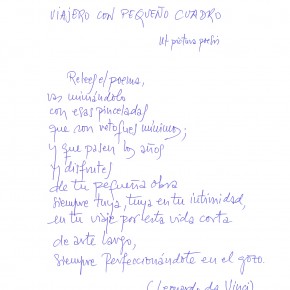 VIAJERO CON PEQUEÑO CUADRO
Ut pictura poesis
Relees el poema,
vas mimándolo
con esas pinceladas
que son retoques mínimos;
y que pasen los años
y disfrutes
de tu pequeña obra
siempre tuya, tuya en tu intimidad,
en tu viaje por esta vida corta
de arte largo,
siempre perfeccionándote en el gozo.
(Leonardo da Vinci)